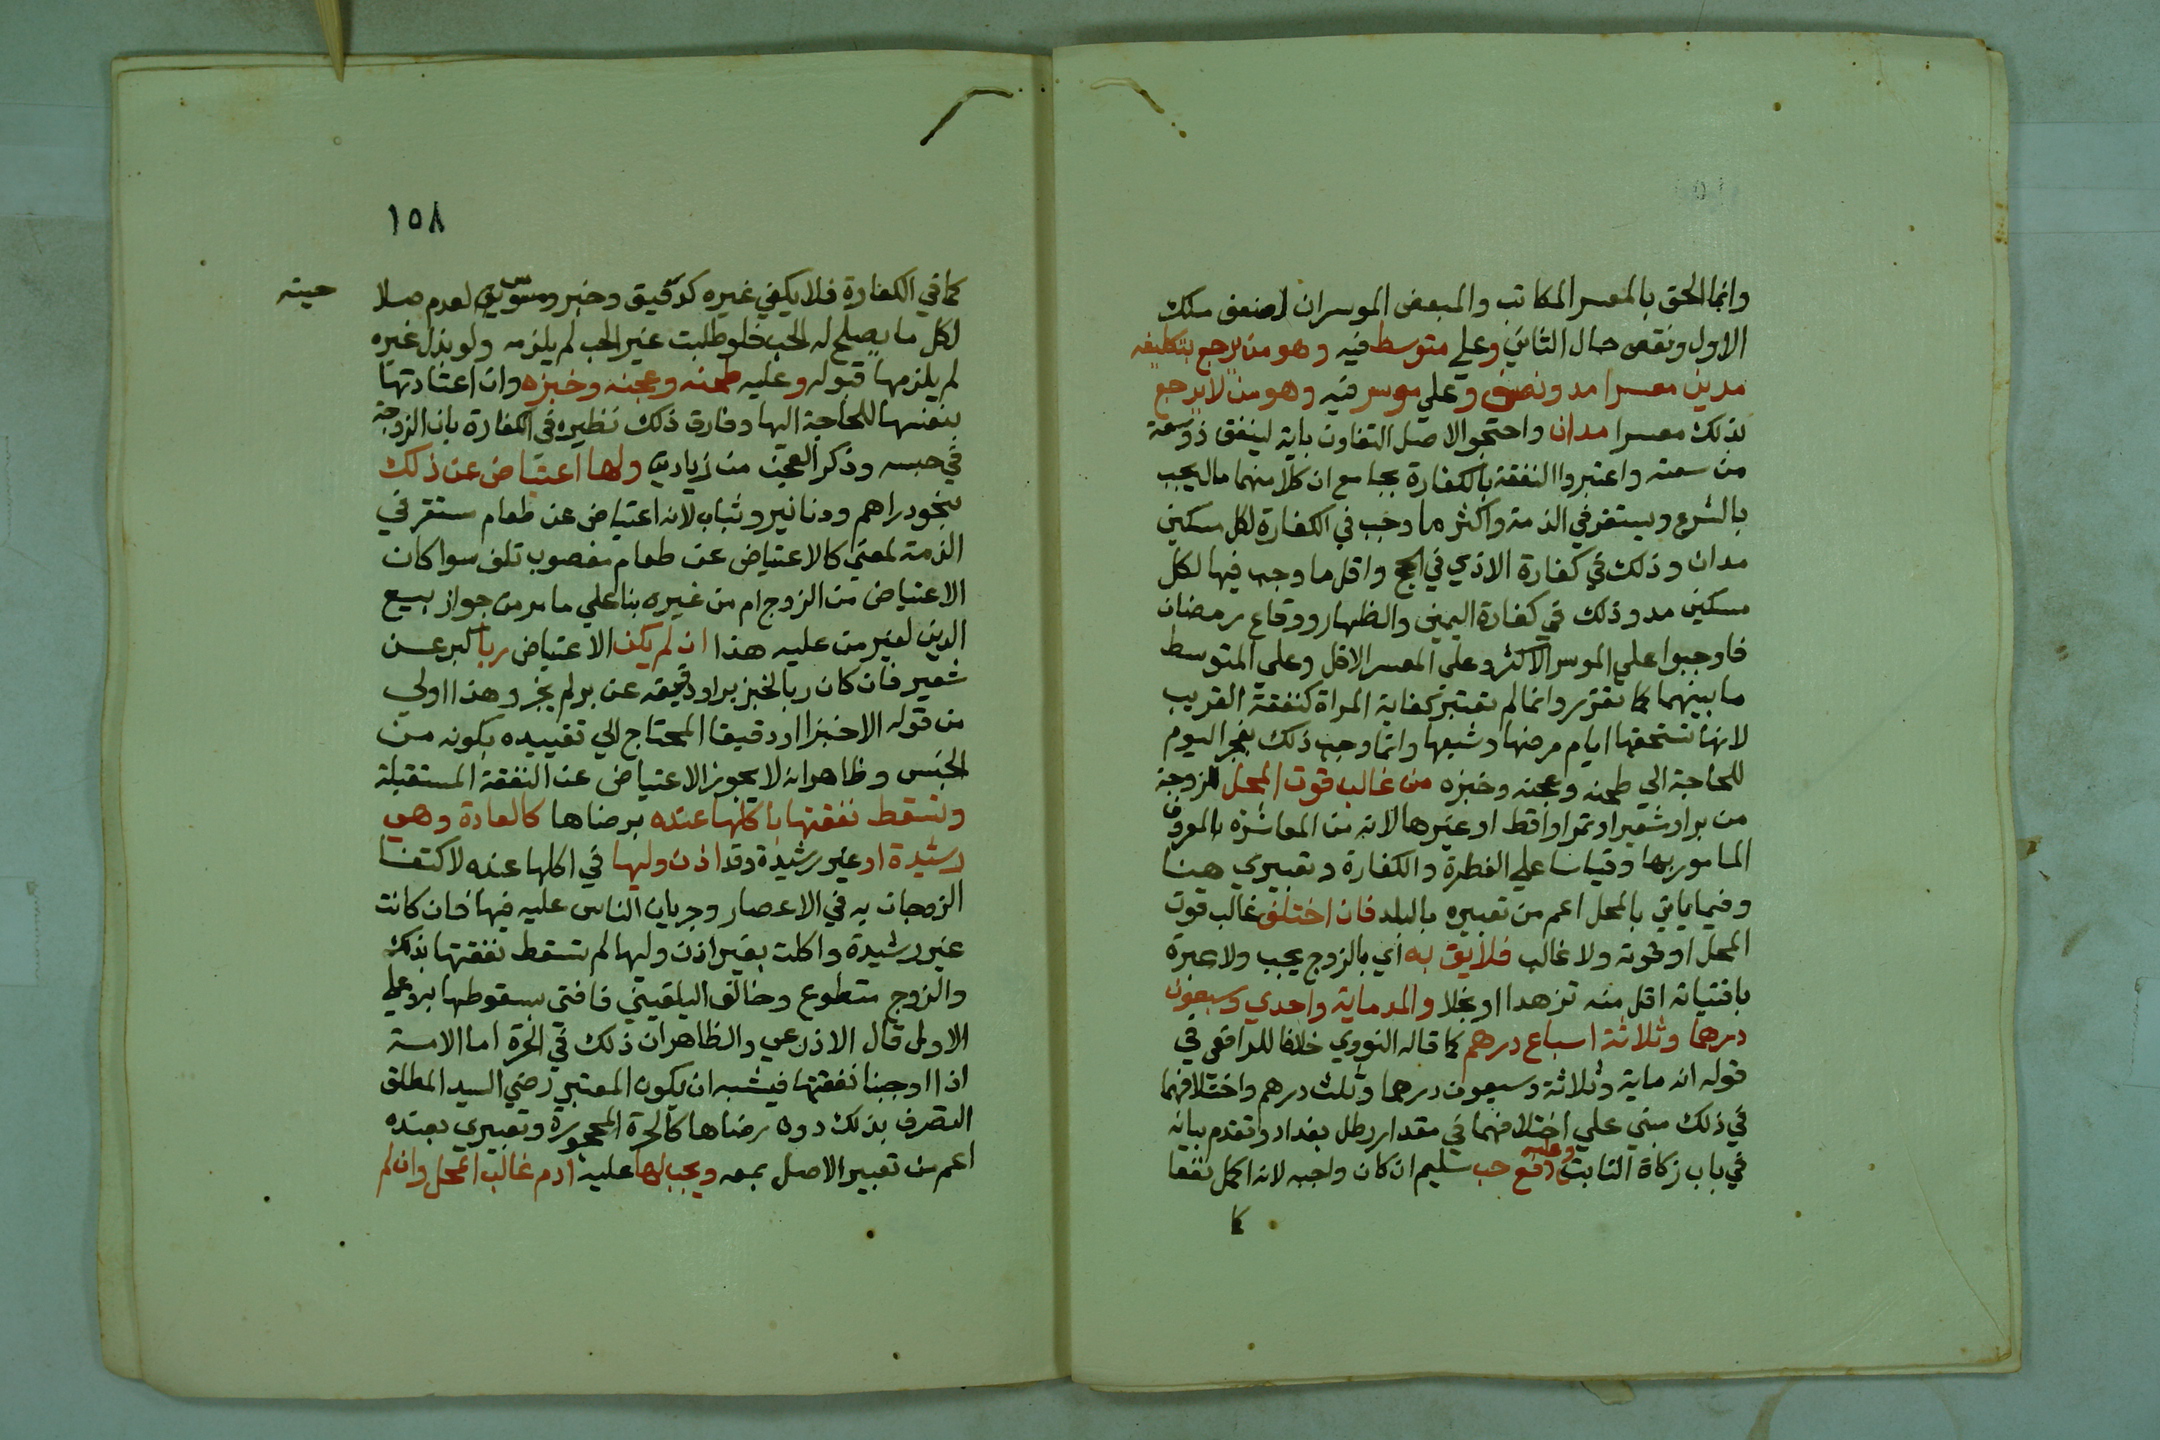 وانما الحق بالمعسر المكاتب والمبعض الموسران لضعف ملك
الاول ونقص حال الثاني وعلي متوسط فيه وهو من يرجع بتكليفه
مدين معسرا مد ونصف وعلي موسر فيه وهو من لا يرجع
بذلك معسرا مدان واحتجوا لاصل التفاوت باية لينفق ذو سعة
من سعته واعتبروا النفقة بالكفارة بجامع ان كلا منهما مال يجب
بالشرع ويستقر في الذمة واكثر ما وجب في الكفارة لكل مسكين
مدان وذلك في كفارة الاذي في الحج واقل ما وجب فيها لكل
مسكين مد وذلك في كفارة اليمين والظهار ووقاع رمضان
فاوجبوا علي الموسر الاكثر وعلي المعسر الاقل وعلي المتوسط
ما بينهما كما تقرر وانما لم تعتبر كفاية المراة كنفقة القريب
لانها تستحقها ايام مرضها وشبعها وانما وجب ذلك بفجر اليوم
للحاجة الي طحنه وعجنه وخبزه من غالب قوت المحل للزوجة
من بر او شعير او تمر او اقط او غيرها لانه من المعاشرة بالمعروف
المامور بها وقياسا علي الفطرة والكفارة وتعبيري هنا
وفيما ياتي بالمحل اعم من تعبيره بالبلد فان اختلف غالب قوت
المحل او قوته ولا غالب فلايق به اي بالزوج يجب ولا عبرة
باقتياته اقل منه تزهدا او بخلا والمد ماية واحدي وسبعون
درهما وثلاثة اسباع درهم كما قاله النووي خلافا للرافعي في
قوله انه ماية وثلاثة وسبعون درهما وثلث درهم واختلافهما
في ذلك مبني علي اختلافهما في مقدار رطل بغداد وتقدم بيانه
في باب زكاة النابت وعليه دفع حب سليم ان كان واجبه لانه اكمل نفعا
كما
١٥٨
كما في الكفارة فلا يكفي غيره كدقيق وخبز وسويق لعدم صلا
حيته
لكل ما يصلح له الحب فلو طلبت غير الحب لم يلزمه ولو بذل غيره
لم يلزمها قبوله وعليه طحنه وعجنه وخبزه وان اعتادتها
بنفسها للحاجة اليها وفارق ذلك نظيره في الكفارة بان الزوجة
في حبسه وذكر العجن من زيادتي ولها اعتياض عن ذلك
بنحو دراهم ودنانير وثياب لانه اعتياض عن طعام مستقر في
الذمة لمعين كالاعتياض عن طعام مغصوب تلف سوا كان
الاعتياض من الزوج ام من غيره بنا علي ما مر من جواز بيع
الدين لغير من عليه هذا ان لم يكن الاعتياض ربا كبر عن
شعير فان كان ربا كخبز بر او دقيقه عن بر لم يجز وهذا اولي
من قوله الا خبزا او دقيقا المحتاج الي تقييده بكونه من
الجنس وظاهر انه لا يجوز الاعتياض عن النفقة المستقبلة
وتسقط نفقتها باكلها عنده برضاها كالعادة وهي
رشيدة او غير رشيدة وقد اذن وليها في اكلها عنده لاكتفا
الزوجات به في الاعصار وجريان الناس عليه فيها فان كانت
غير رشيدة واكلت بغير اذن وليها لم تسقط نفقتها بذلك
والزوج متطوع وخالف البلقيني فافتي بسقوطها به وعلي
الاول قال الاذرعي والظاهر ان ذلك في الحرة اما الامة
اذا اوجبنا نفقتها فيشبه ان يكون المعتبر رضي السيد المطلق
التصرف بذلك دون رضاها كالحرة المحجورة وتعبيري بعنده
اعم من تعبير الاصل بمعه ويجب لها عليه ادم غالب المحل وان لم